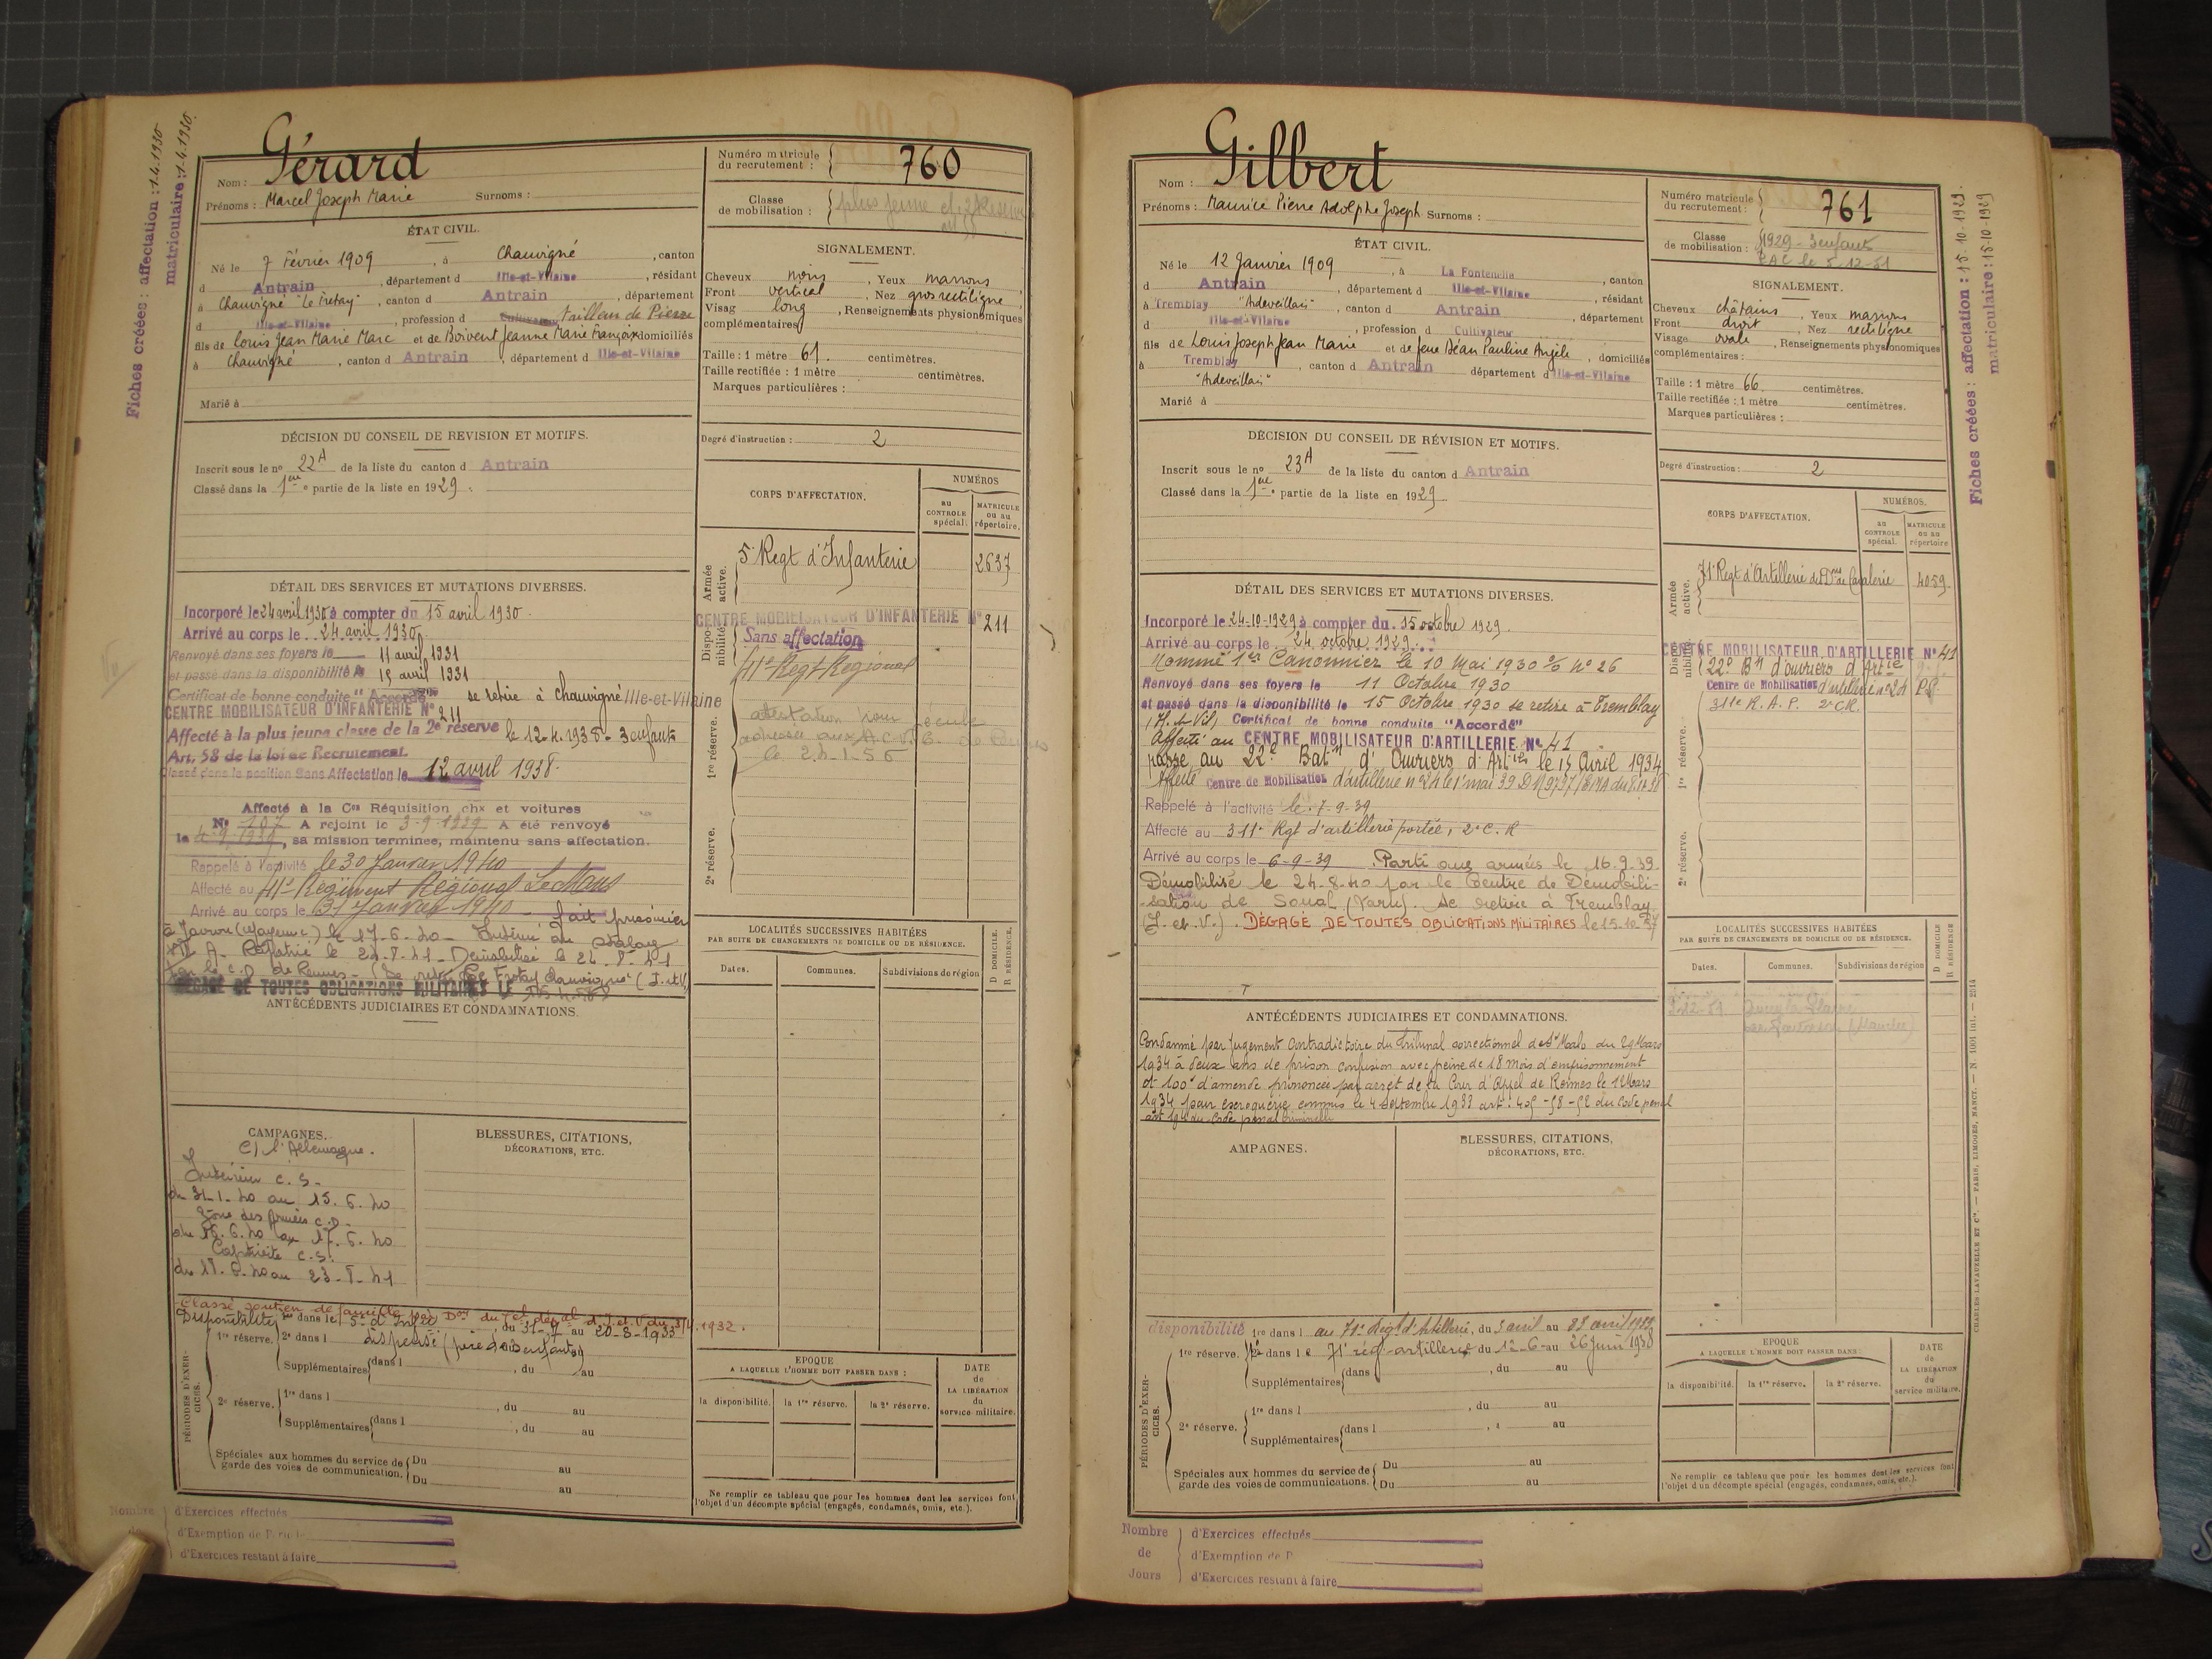 Fiches créées : affectation : 1.4.1930
matriculaire : 1-4-1930.
Nom : Gérard
Prénoms : Marcel Joseph Marie Surnoms :
Numéro matricule du recrutement : 760
Classe de mobilisation :
ÉTAT CIVIL.
Né le 7 Février 1909, à Chauvigné, canton
d Antrain, département d Ille-et-Vilaine, résidant
à Chauvigné "Le Fretay", canton d Antrain, département
d Ille-et-Vilaine, profession d Cultivateur Tailleur de Pierre
fils de Louis Jean Marie Marc et de Boivent Jeanne Marie Françoise domiciliés
à Chauvigné, canton d Antrain, département d Ille-et-Vilaine
Marié à
SIGNALEMENT.
Cheveux noirs, Yeux marrons,
Front vertical, Nez gros rectiligne,
Visag long, Renseignements physionomiques
complémentaires
Taille : 1 mètre 61. centimètres.
Taille rectifiée : 1 mètre centimètres.
Marques particulières :
Degré d'instruction : 2
DÉCISION DU CONSEIL DE REVISION ET MOTIFS.
Inscrit sous le no 22A de la liste du canton d Antrain
Classé dans la 1ere partie de la liste en 1929.
CORPS D'AFFECTATION.
NUMÉROS
au CONTROLE spécial.
MATRICULE ou au répertoire.
Armée active.
5e Regt d'Infanterie 2637
Disponibilité
CENTRE MOBILISATEUR D'INFANTERIE N° 211
Sans affectation
41e Regt Régional
1re réserve.
attestation pour
le 24-1-56
2e réserve.
DÉTAIL DES SERVICES ET MUTATIONS DIVERSES.
Incorporé le 24 avril 1930 à compter du 15 avril 1930.
Arrivé au corps le 24 avril 1930.
Renvoyé dans ses foyers le 11 avril 1931
et passé dans la disponibilité le 15 avril 1931
Certificat de bonne conduite "Accordé" se retire à Chauvigné Ille-et-Vilaine
CENTRE MOBILISATEUR D'INFANTERIE N° 211
Affecté à la plus jeune classe de la 2e réserve le 12-4-1938 - 3 enfants
Art. 58 de la loi de Recrutement.
Classé dans la position Sans Affectation le 12 avril 1938.
Affecté à la Con Réquisition chx et voitures
N° 107 A rejoint le 3-9-1939 A été renvoyé
le 4-9-1939, sa mission terminée, maintenu sans affectation.
Rappelé à l'activité le 30 Janvier 1940
Affecté au 41e Régiment Régional Le Mans
Arrivé au corps le 31 Janvier 1940 - fait prisonnier
à Javron (Mayenne) le 17-6-40 - Interné au Stalag
A - Rapatrié le 24-8-41 - Démobilisé le 24-8-41
par le C.D de Rennes - (Se retire Le Fretay Chauvigné (I. et V)
DÉGAGÉ DE TOUTES OBLIGATIONS MILITAIRES LE
ANTÉCÉDENTS JUDICIAIRES ET CONDAMNATIONS.
LOCALITÉS SUCCESSIVES HABITÉES
PAR SUITE DE CHANGEMENTS DE DOMICILE OU DE RÉSIDENCE.
Dates. Communes. Subdivisions de région
D DOMICILE. R RÉSIDENCE.
CAMPAGNES.
C/ l'Allemagne.
Intérieur C.S.
du 31-1-40 au 15.6.40
Zone des Armées C.D.
du 16.6.40 au 17.6.40
Captivité C.S.
du 18.6.40 au 23-8-41
BLESSURES, CITATIONS,
DÉCORATIONS, ETC.
Classé soutien de famille 1932.
PÉRIODES D'EXERCICES.
Disponibilité 1re dans le 5e d'Infie, du 31-7 au 20-8-1933
1re réserve. 2e dans l dispensé (père de 3 enfants)
Supplémentaires dans l , du au
2e réserve. 1re dans l , du au
Supplémentaires dans l , du au
Spéciales aux hommes du service de garde des voies de communication. Du au
Du au
EPOQUE
A LAQUELLE L'HOMME DOIT PASSER DANS :
la disponibilité. la 1re réserve. la 2e réserve.
DATE de LA LIBÉRATION du service militaire.
Ne remplir ce tableau que pour les hommes dont les services font
l'objet d'un décompte spécial (engagés, condamnés, omis, etc.).
Nombre de
d'Exercices effectués
d'Exemption de
d'Exercices restant à faire
Nom : Gilbert
Prénoms : Maurice Pierre Adolphe Joseph Surnoms :
Numéro matricule du recrutement : 761
Classe de mobilisation : 1929 - 3 enfants
RAC le 5-12-51
Fiches créées : affectation : 15-10-1929.
matriculaire : 15-10-1929
ÉTAT CIVIL.
Né le 12 Janvier 1909, à La Fontenelle, canton
d Antrain, département d Ille-et-Vilaine, résidant
à Tremblay "Ardevillais", canton d Antrain, département
d Ille-et-Vilaine, profession d Cultivateur
fils de Louis Joseph Jean Marie et de feue Déan Pauline Angèle, domiciliés
à Tremblay, canton d Antrain département d Ille-et-Vilaine
"Ardevillais"
Marié à
SIGNALEMENT.
Cheveux châtains, Yeux marrons
Front droit, Nez rectiligne
Visage ovale, Renseignements physionomiques
complémentaires :
Taille : 1 mètre 66 centimètres.
Taille rectifiée : 1 mètre centimètres.
Marques particulières :
Degré d'instruction : 2
DÉCISION DU CONSEIL DE RÉVISION ET MOTIFS.
Inscrit sous le no 23A de la liste du canton d Antrain
Classé dans la 1ere partie de la liste en 1929
CORPS D'AFFECTATION.
NUMÉROS.
au CONTROLE spécial.
MATRICULE ou au répertoire
Armée active.
71e Regt d'Artillerie de Don de Cavalerie 4059.
Disponibilité
CENTRE MOBILISATEUR D'ARTILLERIE N° 41
22e Bn d'ouvriers d'Artie
Centre de Mobilisation d'artillerie n°24
311e R.A.P. 2e CR.
1re réserve.
2e réserve.
DÉTAIL DES SERVICES ET MUTATIONS DIVERSES.
Incorporé le 24-10-1929 à compter du 15 octobre 1929.
Arrivé au corps le 24 octobre 1929.
Nommé 1er Canonnier le 10 Mai 1930 % N° 26
Renvoyé dans ses foyers le 11 Octobre 1930
et passé dans la disponibilité le 15 Octobre 1930 se retire à Tremblay
(Il.-&-Vil) Certificat de bonne conduite "Accordé"
Affecté au CENTRE MOBILISATEUR D'ARTILLERIE N° 41
passe au 22e Batn d'Ouvriers d'Artie le 15 Avril 1934
Affecté Centre de Mobilisation d'artillerie n°24 le 1er mai 39
Rappelé à l'activité le 7-9-39
Affecté au 311e Rgt d'artillerie portée, 2e C.R
Arrivé au corps le 6-9-39 Parti aux armées le 16.9.39.
Démobilisé le 24-8-40 par le Centre de Démobili-
-sation de Soual (Tarn). Se retire à Tremblay
(I. et V.). DÉGAGÉ DE TOUTES OBLIGATIONS MILITAIRES le 15.10.57
ANTÉCÉDENTS JUDICIAIRES ET CONDAMNATIONS.
Condamné par jugement contradictoire du Tribunal correctionnel de St Malo du 29 Mars
1934 à deux ans de prison confusion avec peine de 18 mois d'emprisonnement
et 100f d'amende prononcée par arrêt de la Cour d'Appel de Rennes le 1 Mars
1934 pour escroquerie commis le 4 Septembre 1933 art. 405 - 58 - 52 du Code pénal
LOCALITÉS SUCCESSIVES HABITÉES
PAR SUITE DE CHANGEMENTS DE DOMICILE OU DE RÉSIDENCE.
Dates. Communes. Subdivisions de région
D DOMICILE R RÉSIDENCE
AMPAGNES.
BLESSURES, CITATIONS,
DÉCORATIONS, ETC.
PÉRIODES D'EXERCICES.
disponibilité 1re dans l au 71e Regt d'Artillerie, du 3 avril au 23 avril
1re réserve. 2e dans le 71e rég artillerie du 12-6 au 26 Juin 1938
Supplémentaires dans , du au
2e réserve. 1re dans l , du au
Supplémentaires dans l , au
Spéciales aux hommes du service de garde des voies de communications. Du au
Du au
EPOQUE
A LAQUELLE L'HOMME DOIT PASSER DANS :
la disponibilité. la 1re réserve. la 2e réserve.
DATE de LA LIBÉRATION du service militaire.
Ne remplir ce tableau que pour les hommes dont les services font
l'objet d'un décompte spécial (engagés, condamnés, omis, etc.).
CHARLES-LAVAUZELLE ET Cie. — PARIS, LIMOGES, NANCY. — N. 1001 int. — 2514
Nombre de Jours
d'Exercices effectués
d'Exemption de
d'Exercices restant à faire